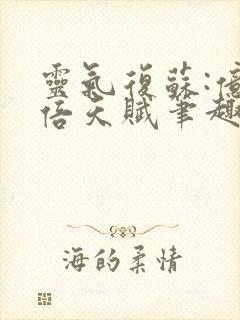 靈氣復蘇:億
倍天賦筆趣
海的柔情